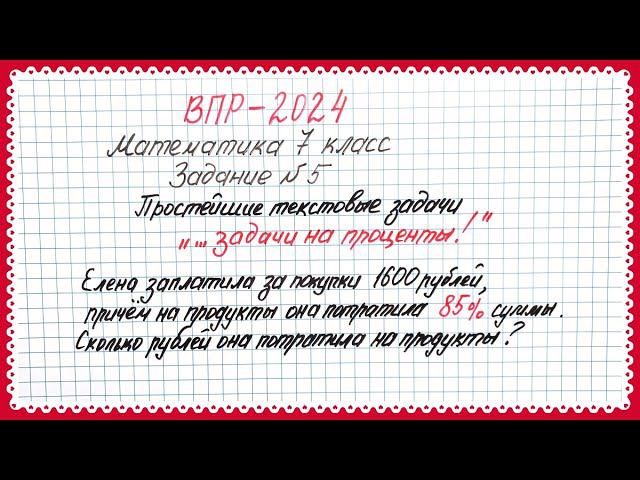 ВПР-2024
Математика 7 класс
Задание №5
Простейшие текстовые задачи
„... задачи на проценты!"
Елена заплатила за покупки 1600 рублей,
причём на продукты она потратила 85% суммы.
Сколько рублей она потратила на продукты?